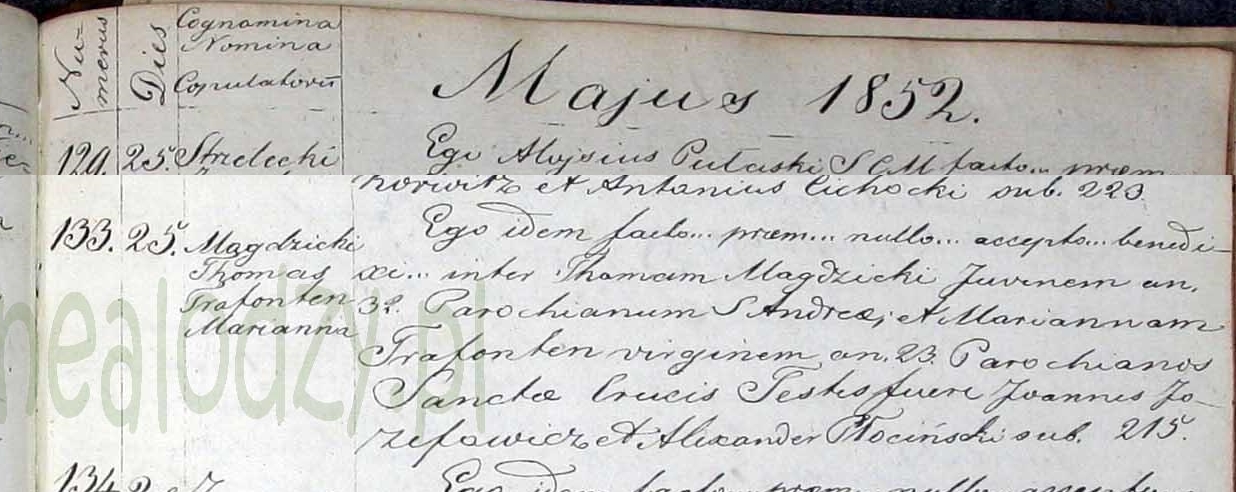 Nu-
merus
Dies
Cognomina
Nomina
Copulatorū
Majus 1852.
129. 25. Strzelecki
Ego Aloysius Putaski S C M facto... præm
horwitz et Antonius Cichocki sub. 223.
133. 25. Magdzicki
Thomas
Trafonten
Marianna
Ego idem facto... præm... nullo... accepto... benedi-
xi... inter Thomam Magdzicki Juvinem an.
32. Parochianum S Andreæ, et Mariannam
Trafonten virginem an. 23. Parochianos
Sanctæ Crucis Testes fuere Joannes Jo-
zefowicz et Alexander Płociński sub. 215.
134.
Ego idem facto... præm... nullo... accepto
nealodzy.pl